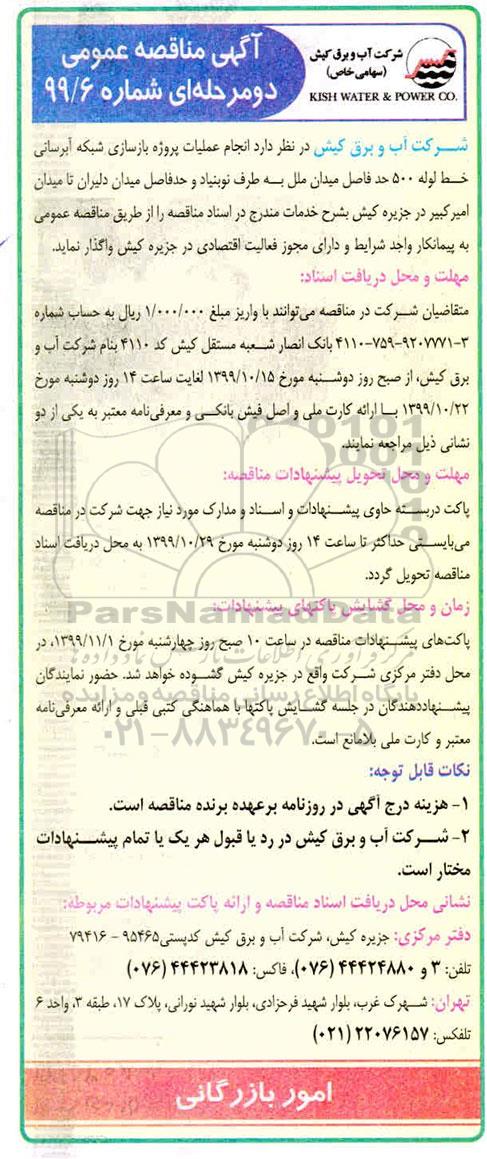 شرکت آب و برق کیش
(سهامی خاص)
KISH WATER & POWER CO.
آگهی مناقصه عمومی
دومرحله‌ای شماره ۹۹/۶
شرکت آب و برق کیش در نظر دارد انجام عملیات پروژه بازسازی شبکه آبرسانی
خط لوله ۵۰۰ حد فاصل میدان ملل به طرف نوبنیاد و حدفاصل میدان دلیران تا میدان
امیرکبیر در جزیره کیش بشرح خدمات مندرج در اسناد مناقصه را از طریق مناقصه عمومی
به پیمانکار واجد شرایط و دارای مجوز فعالیت اقتصادی در جزیره کیش واگذار نماید.
مهلت و محل دریافت اسناد:
متقاضیان شرکت در مناقصه می‌توانند با واریز مبلغ ۱/۰۰۰/۰۰۰ ریال به حساب شماره
۴۱۱۰-۷۵۹-۹۲۰۷۷۷۱-۳ بانک انصار شعبه مستقل کیش کد ۴۱۱۰ بنام شرکت آب و
برق کیش، از صبح روز دوشنبه مورخ ۱۳۹۹/۱۰/۱۵ لغایت ساعت ۱۴ روز دوشنبه مورخ
۱۳۹۹/۱۰/۲۲ با ارائه کارت ملی و اصل فیش بانکی و معرفی‌نامه معتبر به یکی از دو
نشانی ذیل مراجعه نمایند.
مهلت و محل تحویل پیشنهادات مناقصه:
پاکت دربسته حاوی پیشنهادات و اسناد و مدارک مورد نیاز جهت شرکت در مناقصه
می‌بایستی حداکثر تا ساعت ۱۴ روز دوشنبه مورخ ۱۳۹۹/۱۰/۲۹ به محل دریافت اسناد
مناقصه تحویل گردد.
زمان و محل گشایش پاکتهای پیشنهادات:
ParsNamadData
پاکت‌های پیشنهادات مناقصه در ساعت ۱۰ صبح روز چهارشنبه مورخ ۱۳۹۹/۱۱/۱، در
محل دفتر مرکزی شرکت واقع در جزیره کیش گشوده خواهد شد. حضور نمایندگان
پایگاه اطلاع رسانی مناقصه و مزایده
پیشنهاددهندگان در جلسه گشایش پاکتها با هماهنگی کتبی قبلی و ارائه معرفی‌نامه
۰۲۱-۸۸۳۴۹۶۷۰-۵
معتبر و کارت ملی بلامانع است.
نکات قابل توجه:
۱- هزینه درج آگهی در روزنامه برعهده برنده مناقصه است.
۲- شرکت آب و برق کیش در رد یا قبول هر یک یا تمام پیشنهادات
مختار است.
نشانی محل دریافت اسناد مناقصه و ارائه پاکت پیشنهادات مربوطه:
دفتر مرکزی: جزیره کیش، شرکت آب و برق کیش کدپستی ۹۵۴۶۵ - ۷۹۴۱۶
تلفن: ۳ و ۴۴۴۲۴۸۸۰ (۰۷۶)، فاکس: ۴۴۴۲۳۸۱۸ (۰۷۶)
تهران: شهرک غرب، بلوار شهید فرحزادی، بلوار شهید نورانی، پلاک ۱۷، طبقه ۳، واحد ۶
تلفکس: ۲۲۰۷۶۱۵۷ (۰۲۱)
امور بازرگانی